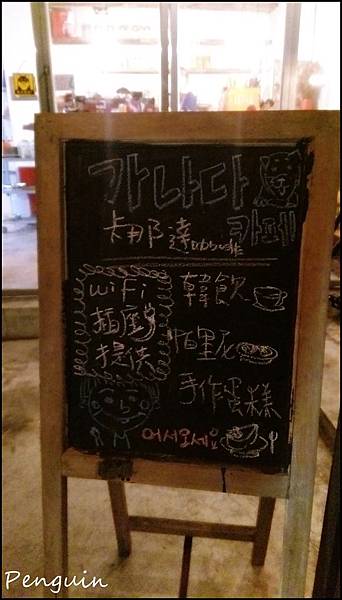 가나다
卡那達咖啡 카페
wifi 韓飲
插座
提供 帕里尼
手作蛋糕
어서오세요
Penguin